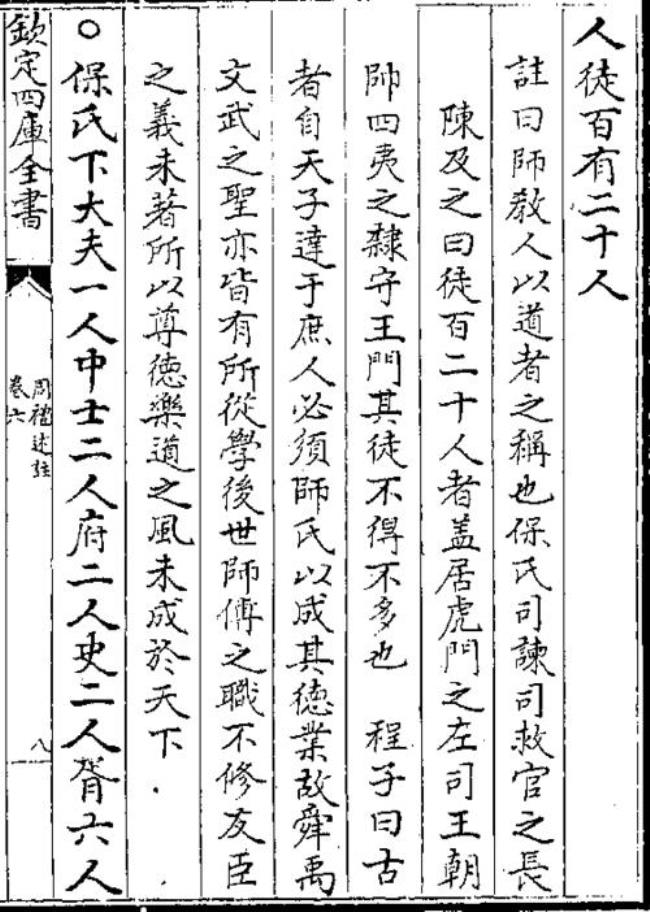 人徒百有二十人
註曰師教人以道者之稱也保氏司諫司救官之長
陳及之曰徒百二十人者盖居虎門之左司王朝
帥四夷之隸守王門其徒不得不多也　程子曰古
者自天子達于庶人必須師氏以成其徳業故舜禹
文武之聖亦皆有所從學後世師傅之職不修友臣
之義未著所以尊徳樂道之風未成於天下
○保氏下大夫一人中士二人府二人史二人胥六人
欽定四庫全書
周禮述註
卷六
八